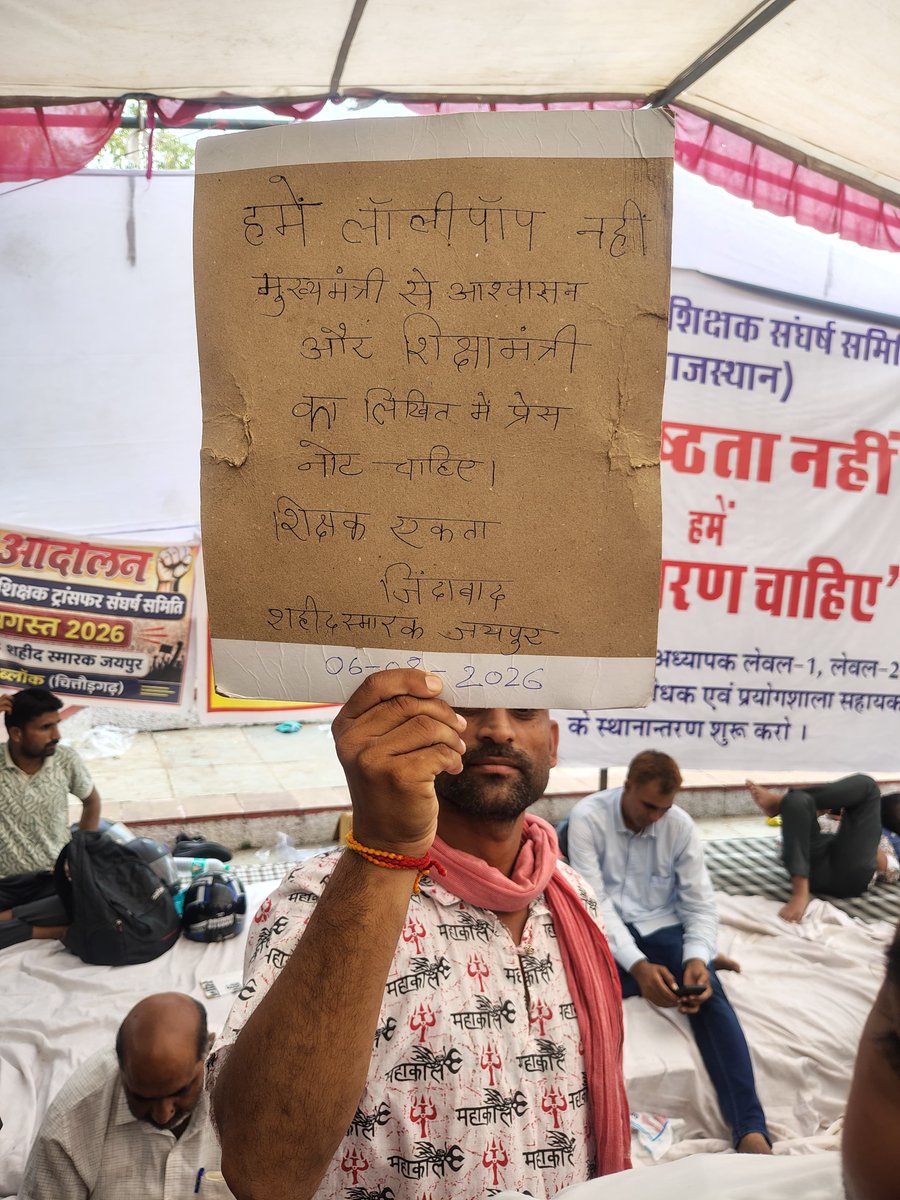 हमें लॉलीपॉप नहीं
मुख्यमंत्री से आश्वासन
और शिक्षामंत्री
का लिखित में प्रेस
नोट चाहिए।
शिक्षक एकता
जिंदावाद
शहीद स्मारक जयपुर
06-08-2026
शिक्षक संघर्ष समिति
राजस्थान)
ष्ठता नहीं
हमें
रण चाहिए’
अध्यापक लेवल-1, लेवल-2
धक एवं प्रयोगशाला सहायक
के स्थानान्तरण शुरू करो ।
आंदोलन
शिक्षक ट्रांसफर संघर्ष समिति
गस्त 2026
शहीद स्मारक जयपुर
ब्लोक (चित्तौड़गढ़)
महाकाल